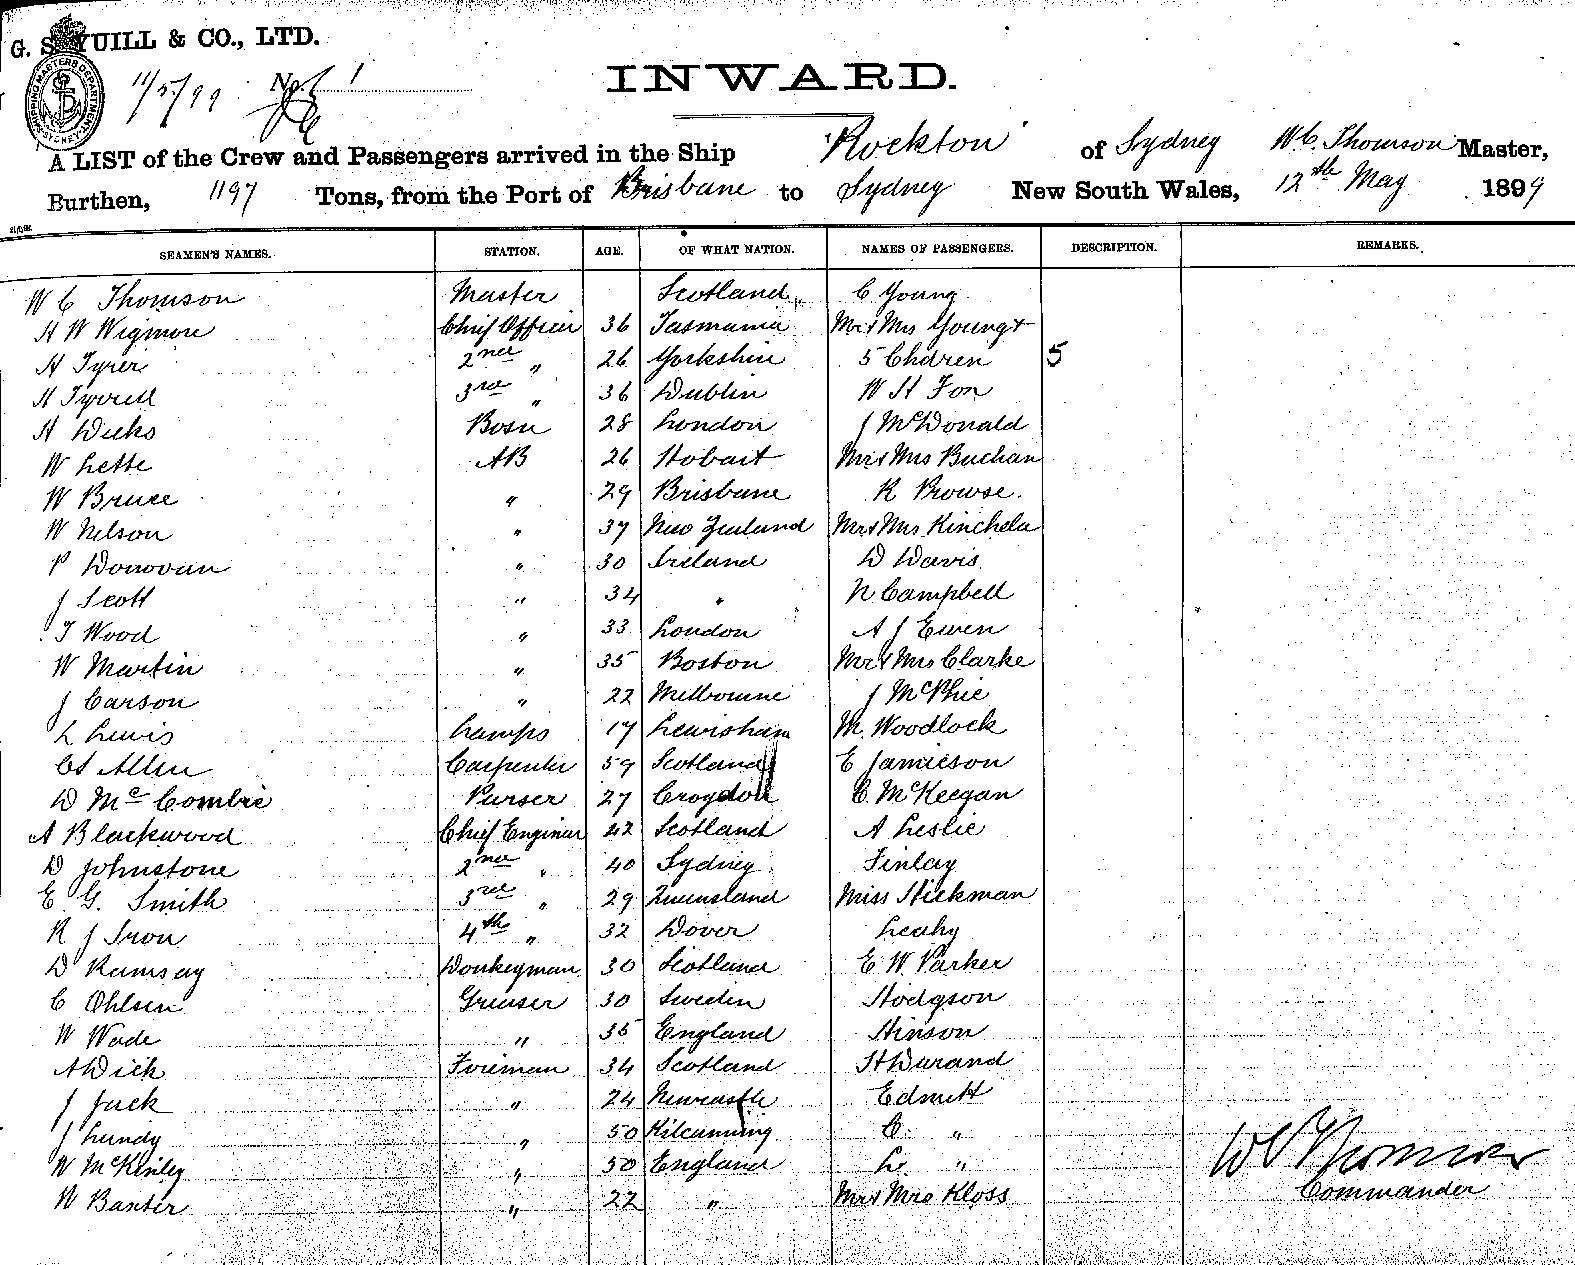 G. S. YUILL & CO., LTD.
SHIPPING MASTERS DEPARTMENT SYDNEY
11/5/99 No. 1
INWARD.
A LIST of the Crew and Passengers arrived in the Ship "Rockton" of Sydney W C Thomson Master,
Burthen, 1197 Tons, from the Port of Brisbane to Sydney New South Wales, 12th May 1899
SEAMEN'S NAMES. STATION. AGE. OF WHAT NATION. NAMES OF PASSENGERS. DESCRIPTION. REMARKS.
W C Thomson Master Scotland C Young
H W Wigmore Chief Officer 36 Tasmania Mr & Mrs Young &
H Tyrer 2nd " 26 Yorkshire 5 Chdren 5
H Tyrrell 3rd " 36 Dublin W H Fox
H Weeks Bosn 28 London J McDonald
W Lette AB 26 Hobart Mr & Mrs Buchan
W Bruce " 29 Brisbane R Prowse.
W Nelson " 37 New Zealand Mr & Mrs Kinchela
P Donovan " 30 Ireland D Davis
J Scott " 34 " N Campbell
T Wood " 33 London A J Ewen
W Martin " 35 Boston Mr & Mrs Clarke
J Carson " 22 Melbourne J McPhie
L Lewis Lamps 17 Lewisham M. Woodlock
Allen Carpenter 59 Scotland E Jamieson
D McCombie Purser 27 Croydon C. McKeegan
A Blackwood Chief Engineer 42 Scotland A Leslie
D Johnstone 2nd " 40 Sydney Finlay
E. G. Smith 3rd " 29 Queensland Miss Hickman
R J Iron 4th " 32 Dover Leahy
D Ramsay Donkeyman 30 Scotland E W Parker
C Ohlsen Greaser 30 Sweden Hodgson
W Wade " 35 England Hinson
A Dick Fireman 34 Scotland H Durand
J Jack " 24 Newcastle
J Lundy " 50 C. "
W McKinley " 50 England L. "
W Baxter " 22 " Mr & Mrs Kloss
W C Thomson
Commander